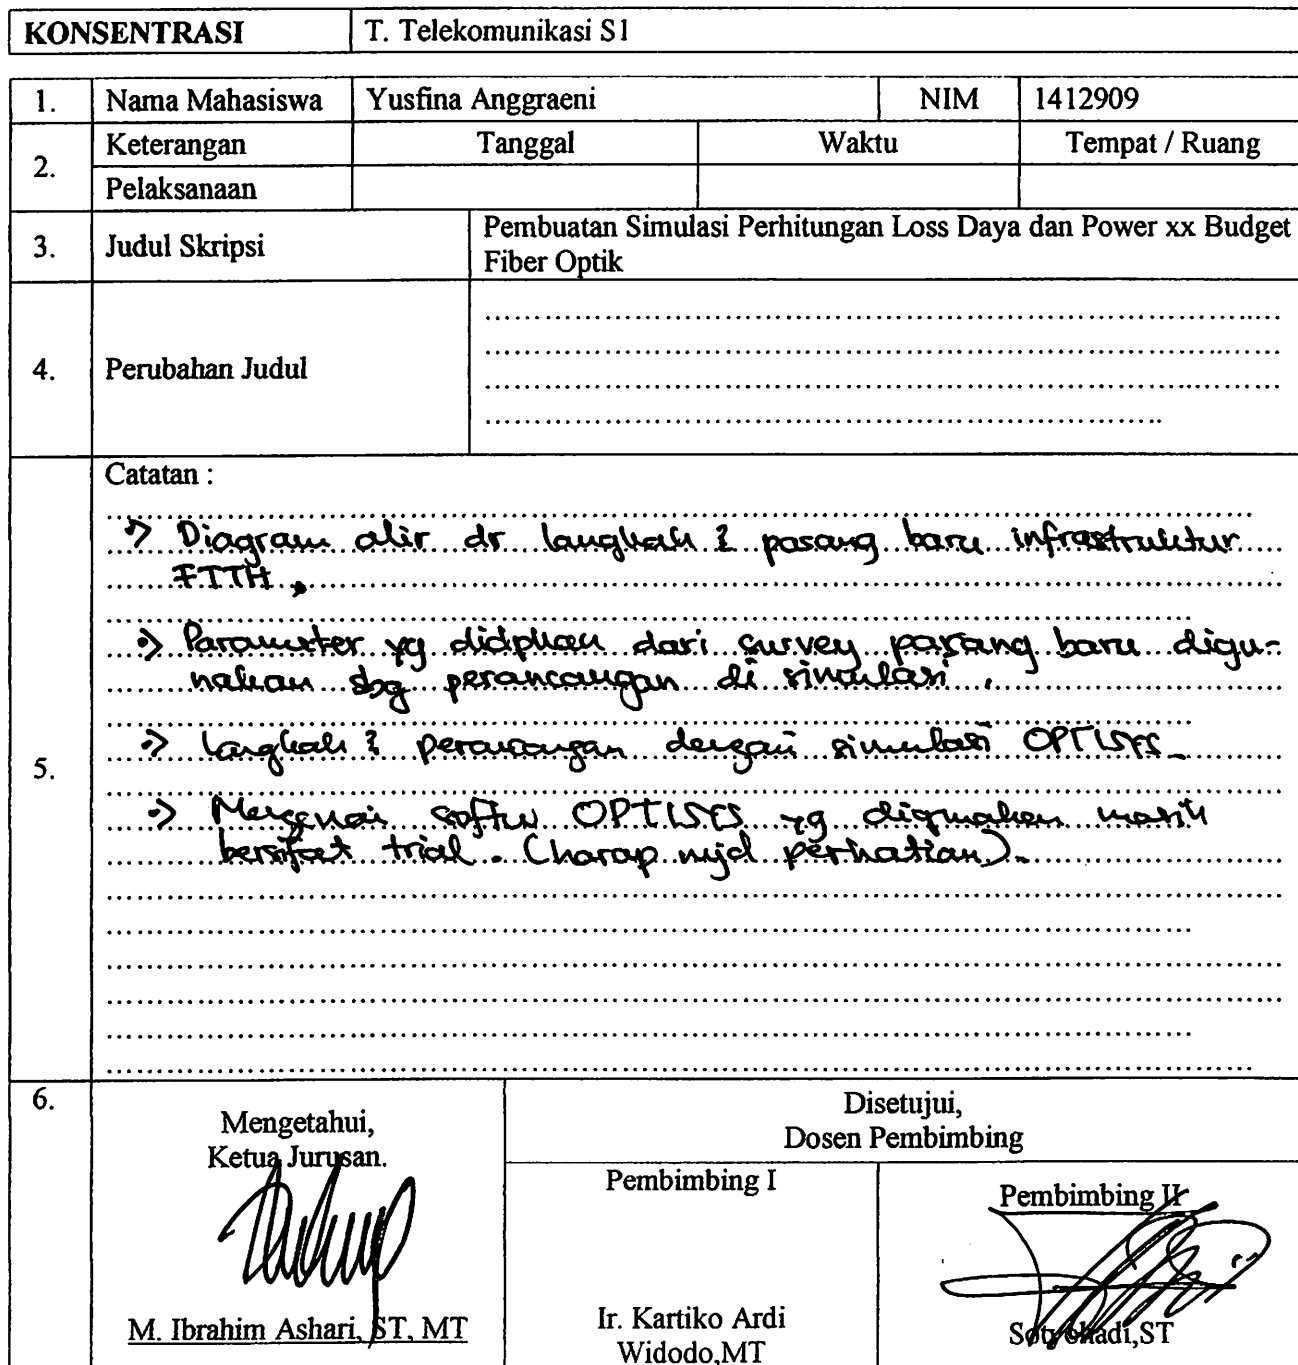 KONSENTRASI T. Telekomunikasi S1
1. Nama Mahasiswa Yusfina Anggraeni NIM 1412909
2. Keterangan Tanggal Waktu Tempat / Ruang
Pelaksanaan
3. Judul Skripsi Pembuatan Simulasi Perhitungan Loss Daya dan Power xx Budget
Fiber Optik
4. Perubahan Judul
5. Catatan :
Diagram alir dr langkah 2 pasang baru infrastruktur
FTTH.
Parameter yg didptkan dari survey pasang baru digu-
nakan sbg perancangan di simulasi.
Langkah 2 perancangan dengan simulasi OPTISYS
Mengenai softw OPTISYS yg digunakan masih
bersifat trial. (harap mjd perhatian).
6. Mengetahui,
Ketua Jurusan.
M. Ibrahim Ashari, ST, MT
Disetujui,
Dosen Pembimbing
Pembimbing I
Ir. Kartiko Ardi
Widodo,MT
Pembimbing II